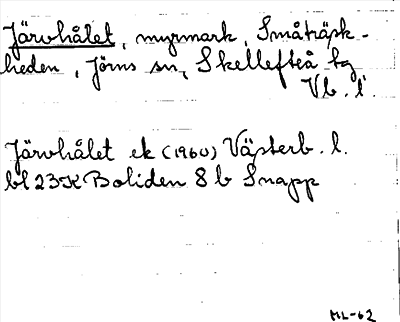 Järvhålet, myrmark, Småträsk-
heden, Jörns sn, Skellefteå tg
Vb. l.
Järvhålet ek (1960) Västerb. l.
bl 23K Boliden 8 b Snapp
ML-62